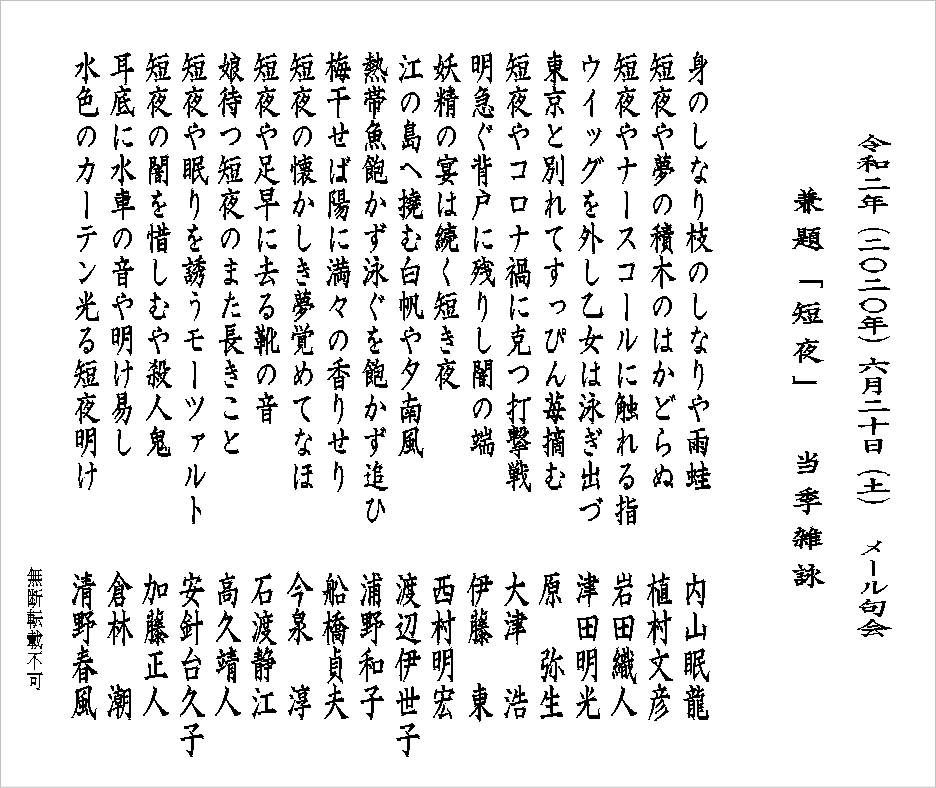 令和二年（二〇二〇年）六月二十日（土） メール句会
兼題「短夜」 当季雑詠
身のしなり枝のしなりや雨蛙 内山眠龍
短夜や夢の積木のはかどらぬ 植村文彦
短夜やナースコールに触れる指 岩田織人
ウイッグを外し乙女は泳ぎ出づ 津田明光
東京と別れてすっぴん苺摘む 原 弥生
短夜やコロナ禍に克つ打撃戦 大津 浩
明急ぐ背戸に残りし闇の端 伊藤 東
妖精の宴は続く短き夜 西村明宏
江の島へ撓む白帆や夕南風 渡辺伊世子
熱帯魚飽かず泳ぐを飽かず追ひ 浦野和子
梅干せば陽に満々の香りせり 船橋貞夫
短夜の懐かしき夢覚めてなほ 今泉 淳
短夜や足早に去る靴の音 石渡静江
娘待つ短夜のまた長きこと 高久靖人
短夜や眠りを誘うモーツァルト 安針台久子
短夜の闇を惜しむや殺人鬼 加藤正人
耳底に水車の音や明け易し 倉林 潮
水色のカーテン光る短夜明け 清野春風
無断転載不可